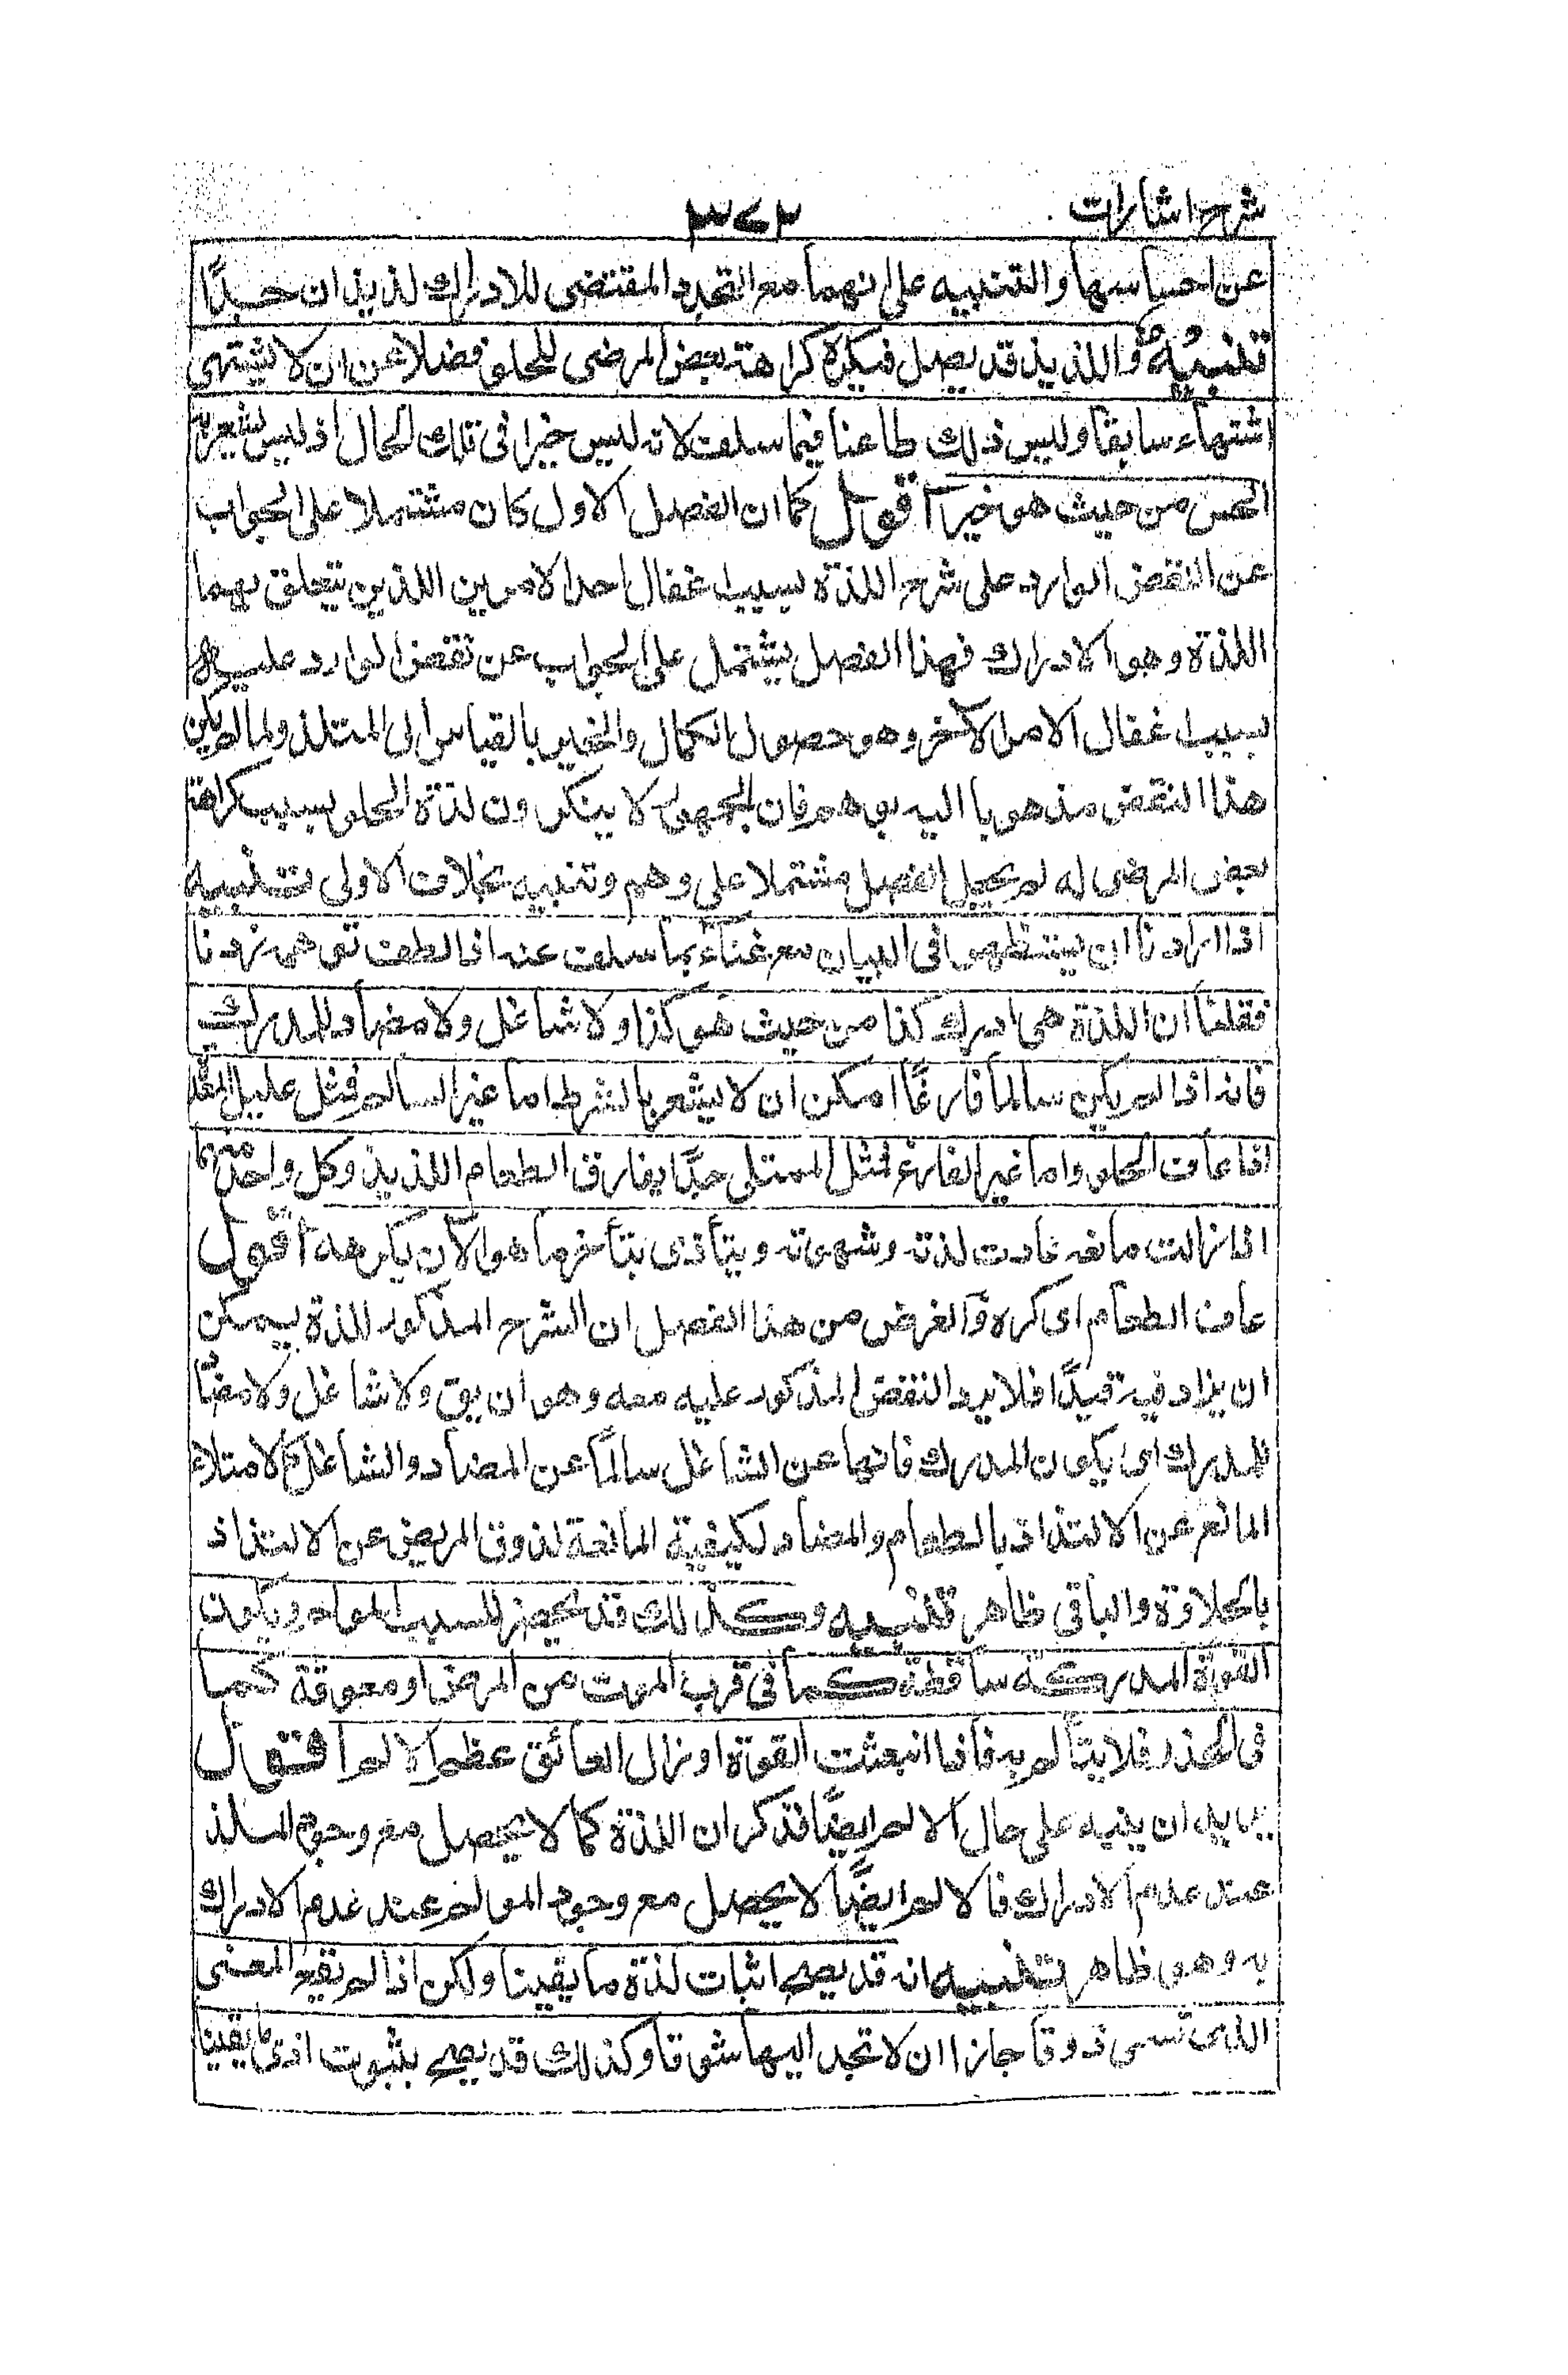 شرح اشارات
٣٧٢
عن احساسها والتنبيه على انهما مع التجدد المقتضى للادراك لذيذان جدًا
تنبيه واللذيذ قد يصل فيكره كراهته بعض المرضى للحلو فضلا عن ان لا يشتهى
اشتهاء سابقا وليس ذلك طاعنا فيما سلف لانه ليس خيرا فى تلك الحال اذ ليس يشعر به
الحس من حيث هو خير اقول كما ان الفصل الاول كان مشتملا على الجواب
عن النقض الوارد على شرح اللذة بسبب اغفال احد الامرين اللذين يتعلق بهما
اللذة وهو الادراك فهذا الفصل يشتمل على الجواب عن نقض الوارد عليه
بسبب اغفال الامر الآخر وهو حصول الكمال والخير بالقياس الى الملتذ ولما لم يكن
هذا النقض مذهوبا اليه بوهم فان الجمهور لا ينكرون لذة الحلو بسبب كراهة
بعض المرضى له لم يجعل الفصل مشتملا على وهم وتنبيه بخلاف الاولى تنبيه
اذا اردنا ان نستظهر فى البيان مع غناء بما سلف عنه اذا لطف توهمه زدنا
فقلنا ان اللذة هى ادراك كذا من حيث هو كذا ولا شاغل ولا مضاد للمدرك
فانه اذا لم يكن سالما فارغًا امكن ان لا يشعر بالشرط اما غير السالم فمثل عليل المعدة
اذا عاف الحلو واما غير الفارغ فمثل الممتلى جدًا يفارق الطعام اللذيذ وكل واحد منهما
اذا زالت مانعه عادت لذته وشهوته ويتأذى بتأخر ما هو الآن يكرهه اقول
عاف الطعام اى كره والغرض من هذا الفصل ان الشرح المذكور للذة يمكن
ان يزاد فيه قيدًا فلا يرد النقض المذكور عليه معه وهو ان يق ولا شاغل ولا مضاد
للمدرك اى يكون المدرك فارغا عن الشاغل سالمًا عن المضاد والشاغل كالامتلاء
المانع عن الالتذاذ بالطعام والمضاد لكيفية المانعة لذوق المريض عن الالتذاذ
بالحلاوة والباقى ظاهر تنبيه وكذلك قد يحضر السبب المولم ويكون
القوة المدركة ساقطة كما فى قرب الموت من المرض او معوقة كما
فى الخدر فلا يتألم به فاذا انبعثت القوة او زال العائق عظم الالم اقول
يريد ان ينبه على حال الالم ايضًا فذكر ان اللذة كما لا يحصل مع وجود الملذ
عند عدم الادراك فالالم ايضًا لا يحصل مع وجود المولم عند عدم الادراك
به وهو ظاهر تنبيه انه قد يصح اثبات لذة ما يقينا ولكن اذا لم يقع المعنى
الذى تسمى ذوقا جاز ان لا تجد اليها شوقا وكذلك قد يصح بثبوت اذى ما يقينا